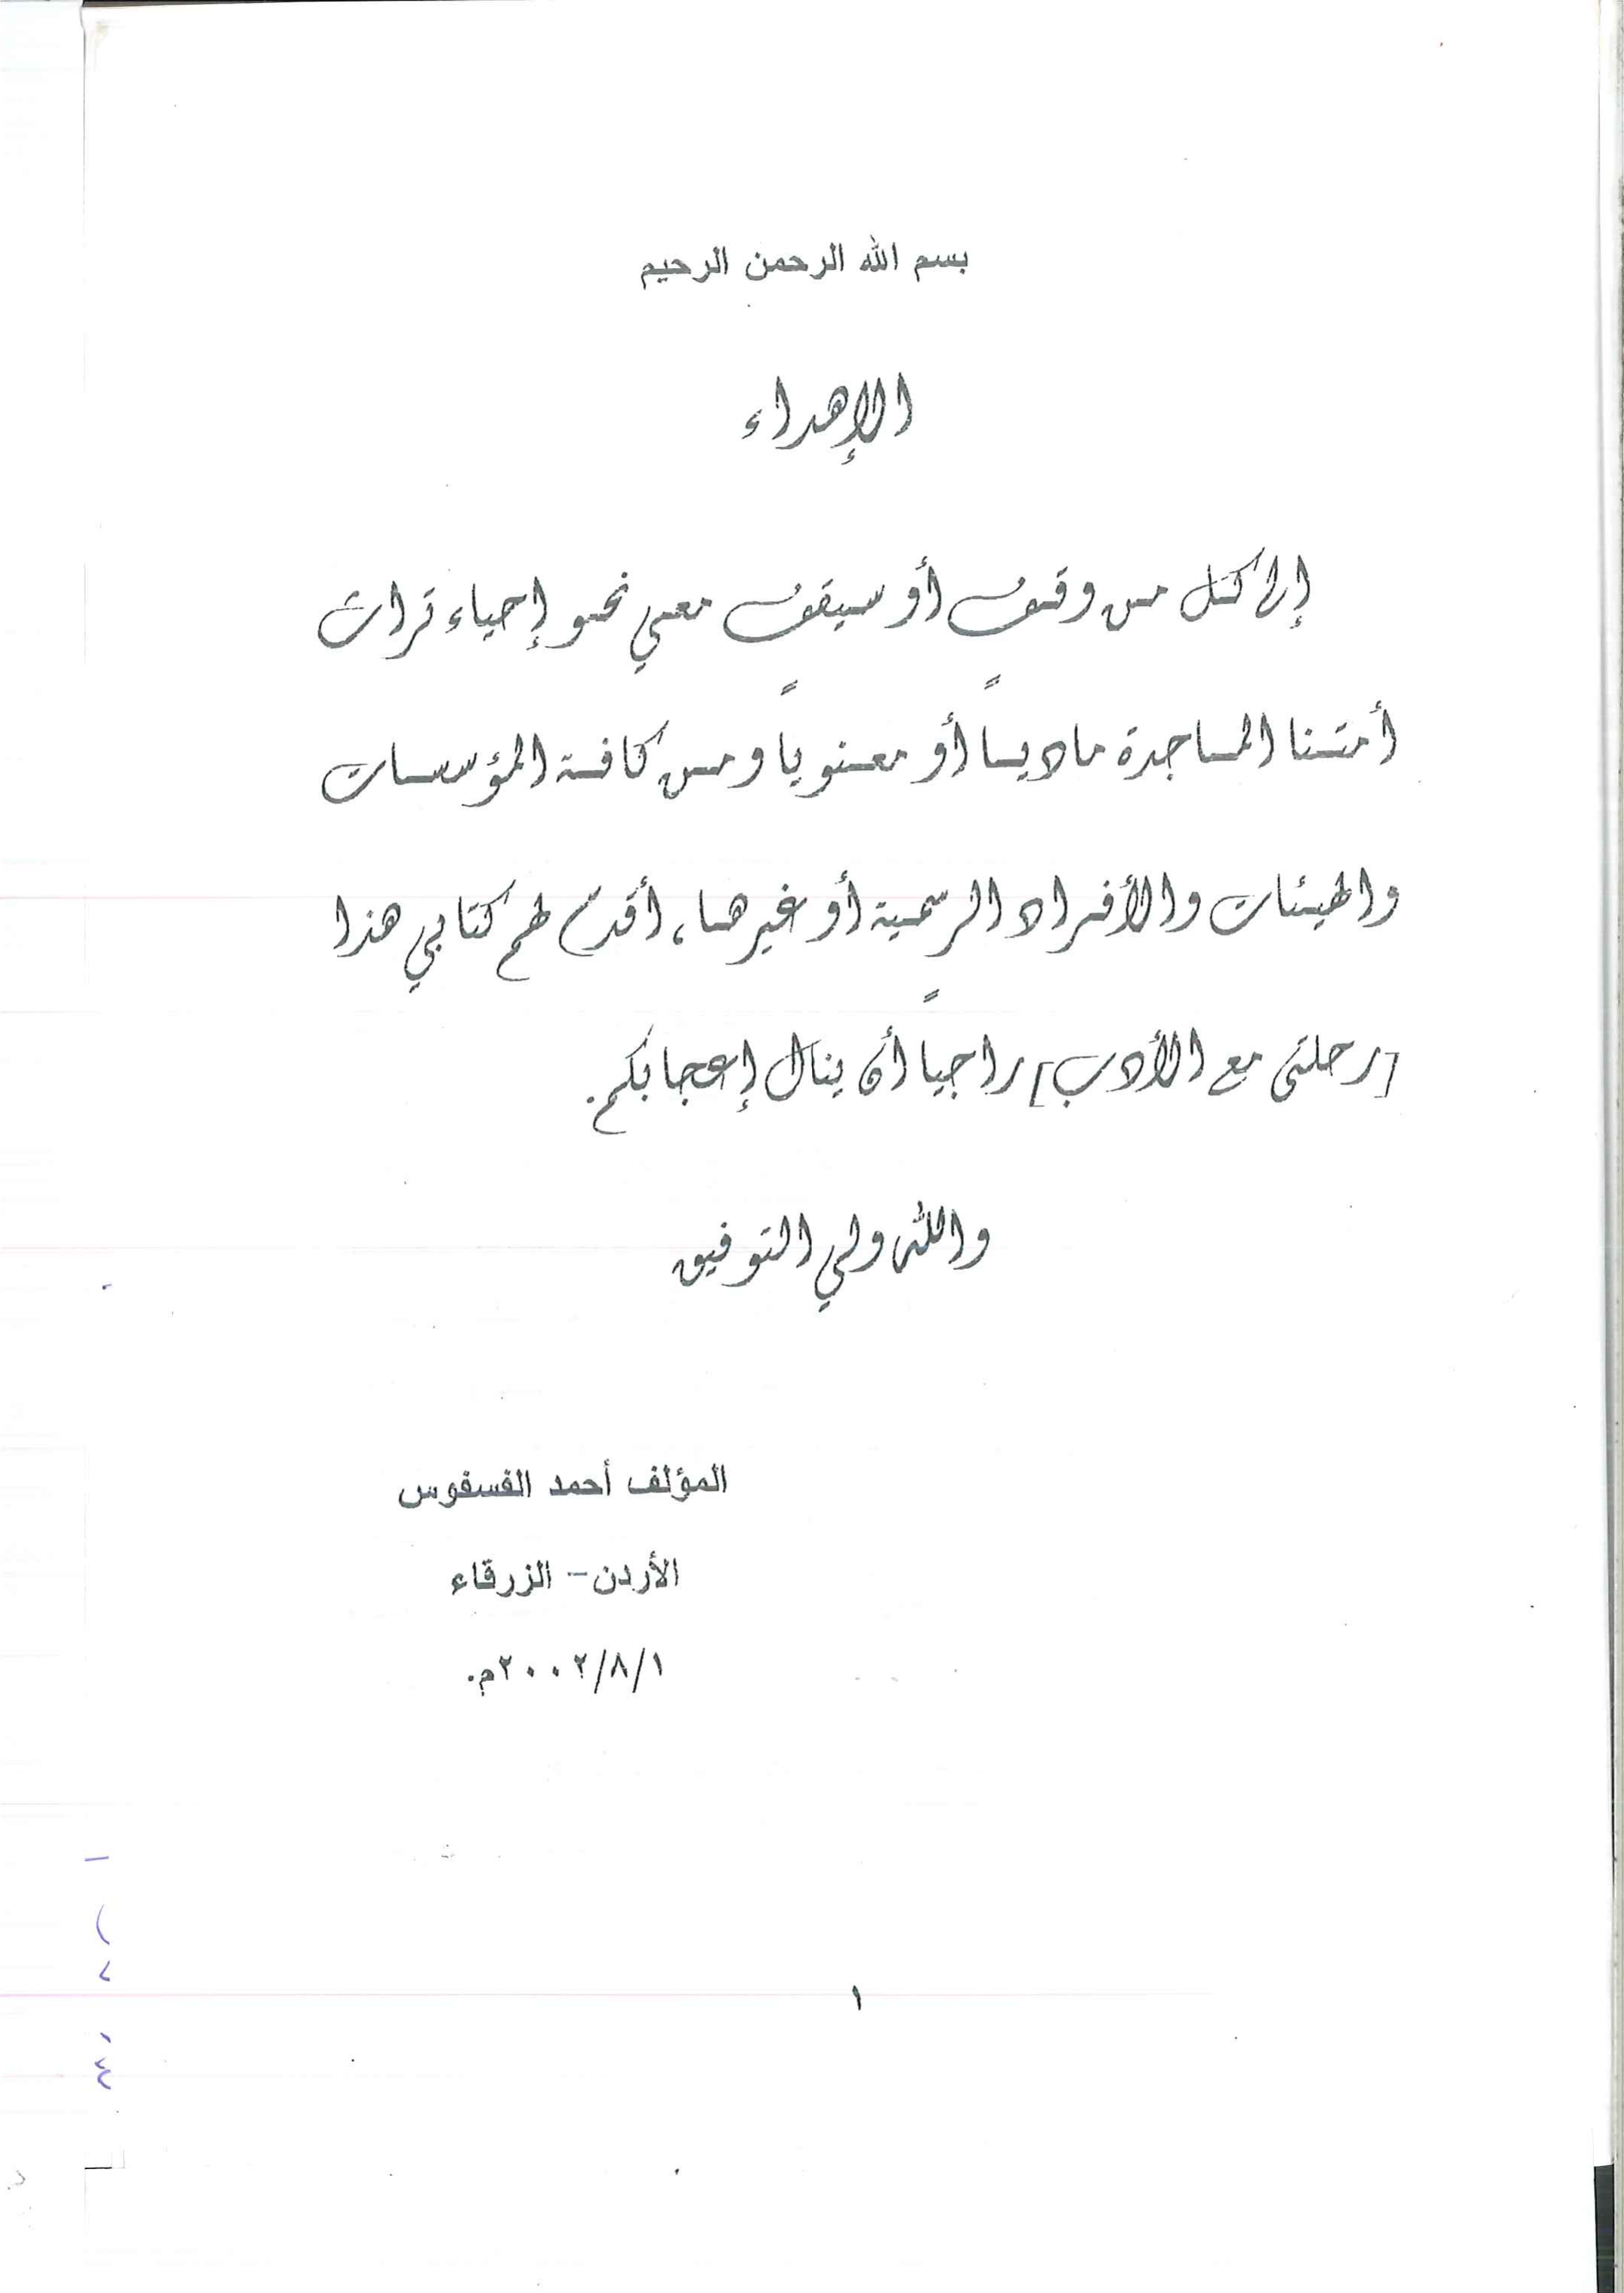 بسم الله الرحمن الرحيم
الإهداء
إلى كل من وقف أو سيقف معي نحو إحياء تراث
أمتنا الماجدة مادياً أو معنوياً ومن كافة المؤسسات
والهيئات والأفراد الرسمية أو غيرها، أقدم لهم كتابي هذا
[رحلتي مع الأدب] راجياً أن ينال إعجابكم.
والله ولي التوفيق
المؤلف أحمد الفسفوس
الأردن- الزرقاء
٢٠٠٢/٨/١م.
١